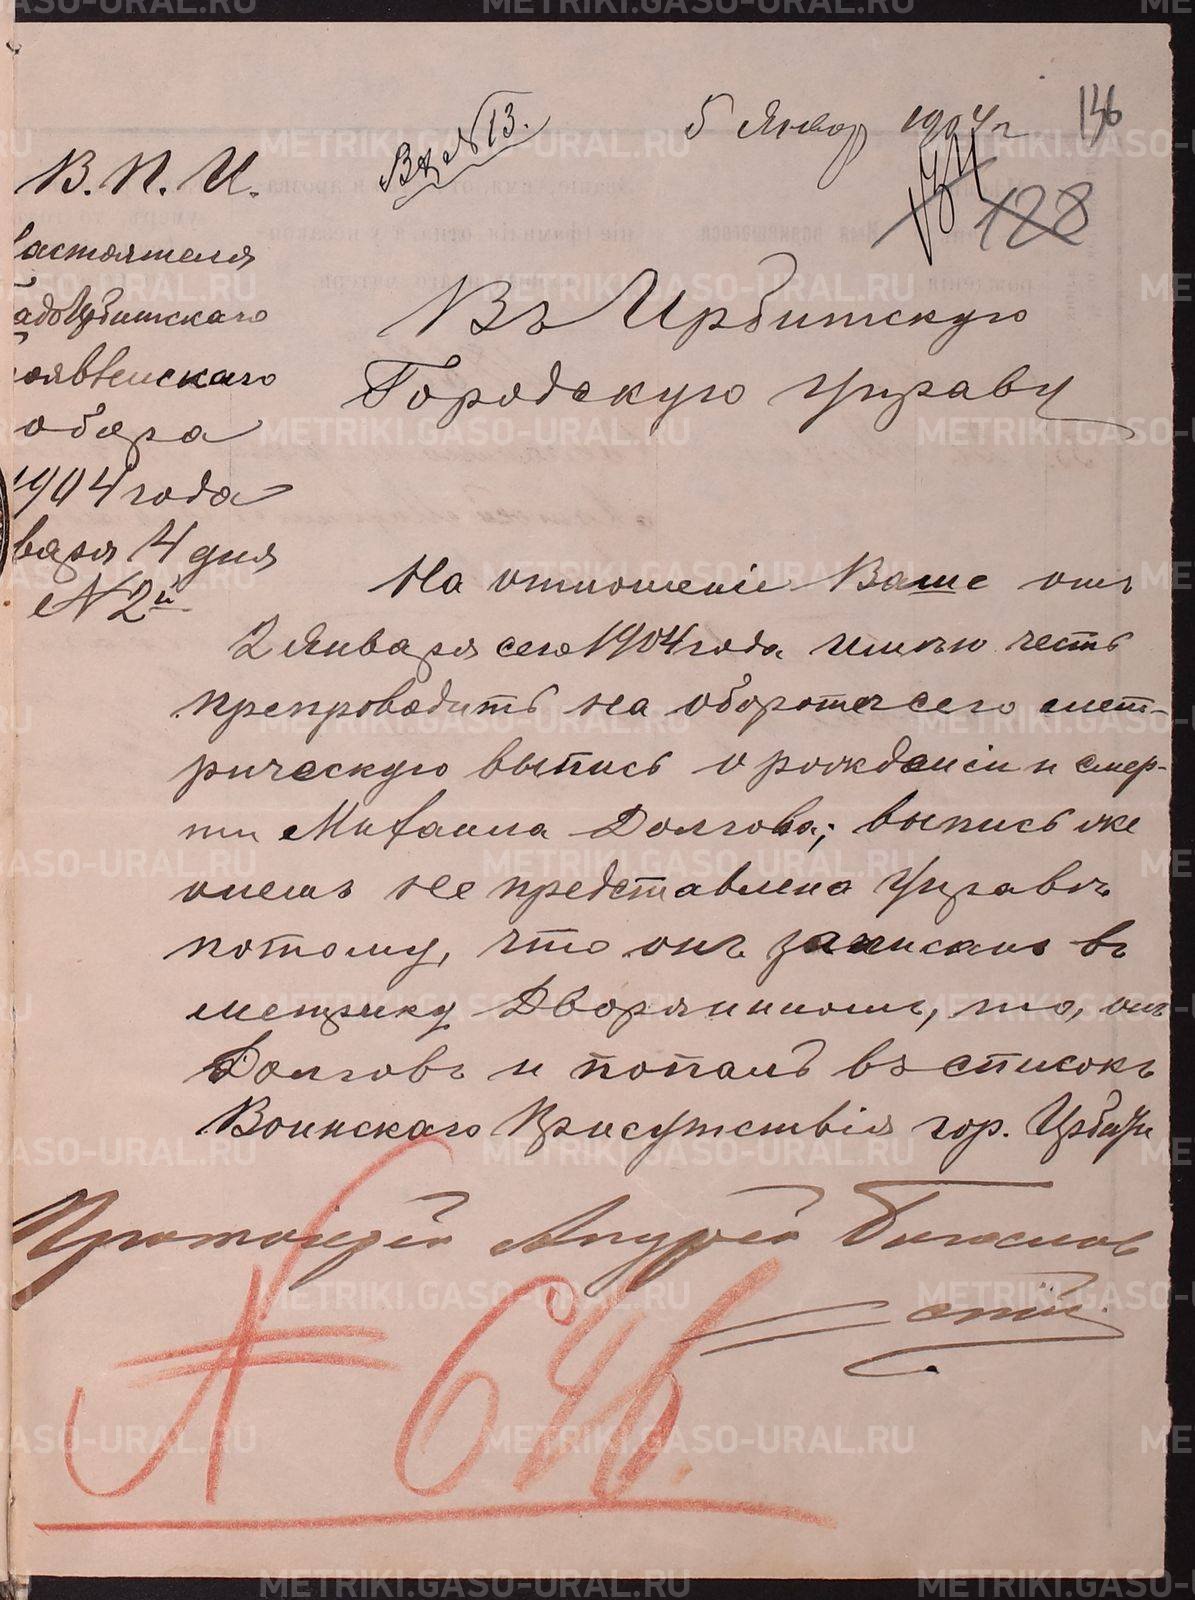 Вх № 13.
5 Январ 1904 г
136
134
128
В. П. И.
астоятеля
адоИрбитскаго
оявленскаго
обора
1904 года
варя 4 дня
№ 2й
Въ Ирбитскую
Городскую Управу
На отношеніе Ваше отъ
2 Января сего 1904 года имѣю честь
препроводить на оборотѣ сего мет-
рическую выпись о рожденіи и смер-
ти Михаила Долгова; выпись же
не представлена Управѣ
потому, что онъ записанъ въ
метрику Дворяниномъ, то, онъ
Долговъ и попалъ въ списокъ
Воинскаго Присутствія гор. Ирбити
Протоіерей Андрей
№ 646.
METRIKI.GASO-URAL.RU